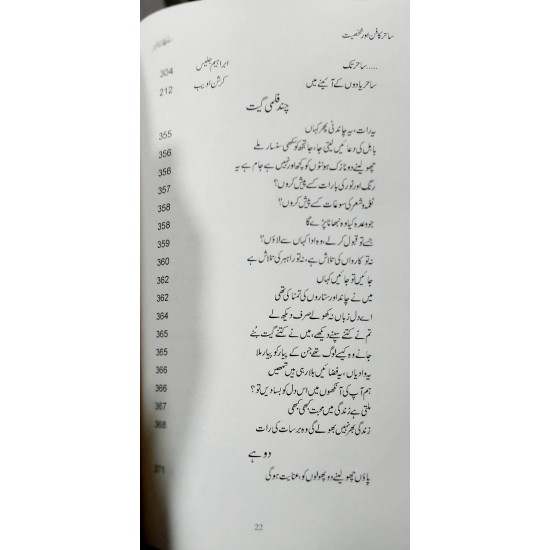 ساحر کا فن اور شخصیت
.....ساحر تک ابراہیم جلیس 304
ساحر یادوں کے آئینے میں کرشن ادیب 212
چند فلمی گیت
یہ رات، یہ چاندنی پھر کہاں 355
بابل کی دعائیں لیتی جا، جا تجھ کو سکھی سنسار ملے 356
چھو لینے دو نازک ہونٹوں کو کچھ اور نہیں ہے جام ہے یہ 356
رنگ اور نور کی بارات کسے پیش کروں؟ 357
نغمہ و شعر کی سوغات کسے پیش کروں؟ 358
جو وعدہ کیا وہ نبھانا پڑے گا 358
جسے تو قبول کر لے، وہ ادا کہاں سے لاؤں؟ 359
نہ تو کارواں کی تلاش ہے، نہ تو راہبر کی تلاش ہے 360
جائیں تو جائیں کہاں 362
میں نے چاند اور ستاروں کی تمنا کی تھی 362
اے دل زباں نہ کھولے صرف دیکھ لے 364
تم نے کتنے سپنے دیکھے، میں نے کتنے گیت بُنے 365
جانے وہ کیسے لوگ تھے جن کے پیار کو پیار ملا 365
یہ وادیاں، یہ فضائیں بلا رہی ہیں تمھیں 366
ہم آپ کی آنکھوں میں اس دل کو بسا دیں تو؟ 366
ملتی ہے زندگی میں محبت کبھی کبھی 367
زندگی بھر نہیں بھولے گی وہ برسات کی رات 368
دوہے
پاؤں چھو لینے دو پھولوں کو، عنایت ہوگی 371
22